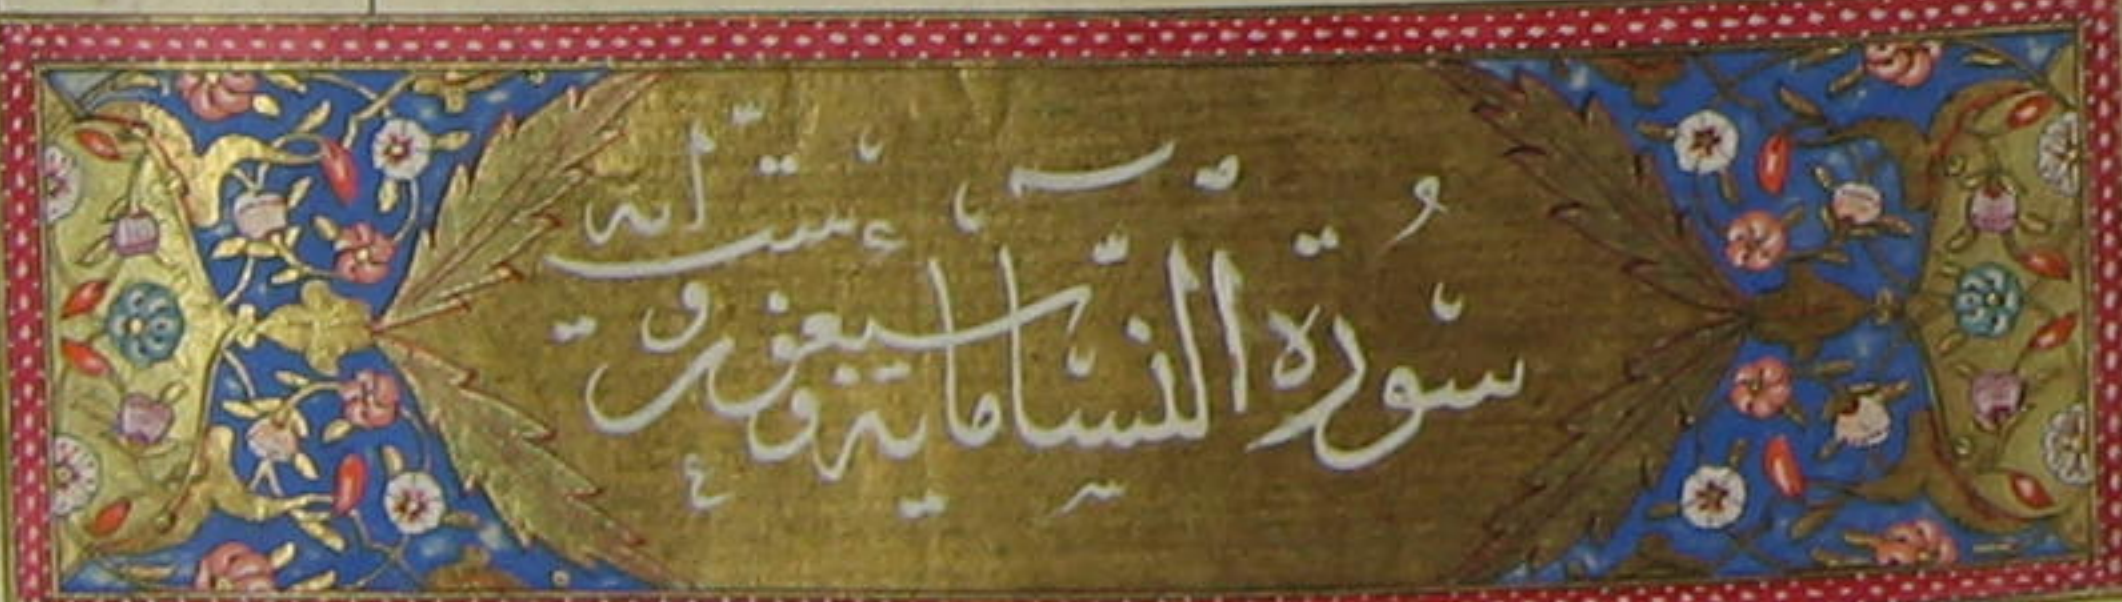 سورة النسا ماية وسبعون وست اية